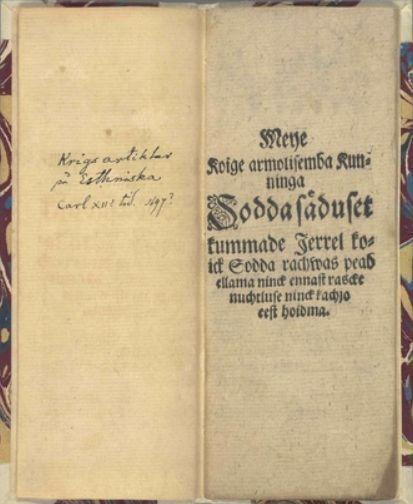 Krigsartiklar
på Esthniska
Carl XII:s tid. 1697?
Meye
Koige armolisemba Kun⸗
ninga
Soddasäduset
kummade Jerrel ko⸗
ick Sodda rachwas peab
ellama ninck ennast rascke
nuchtluse ninck kachjo
eest hoidma.